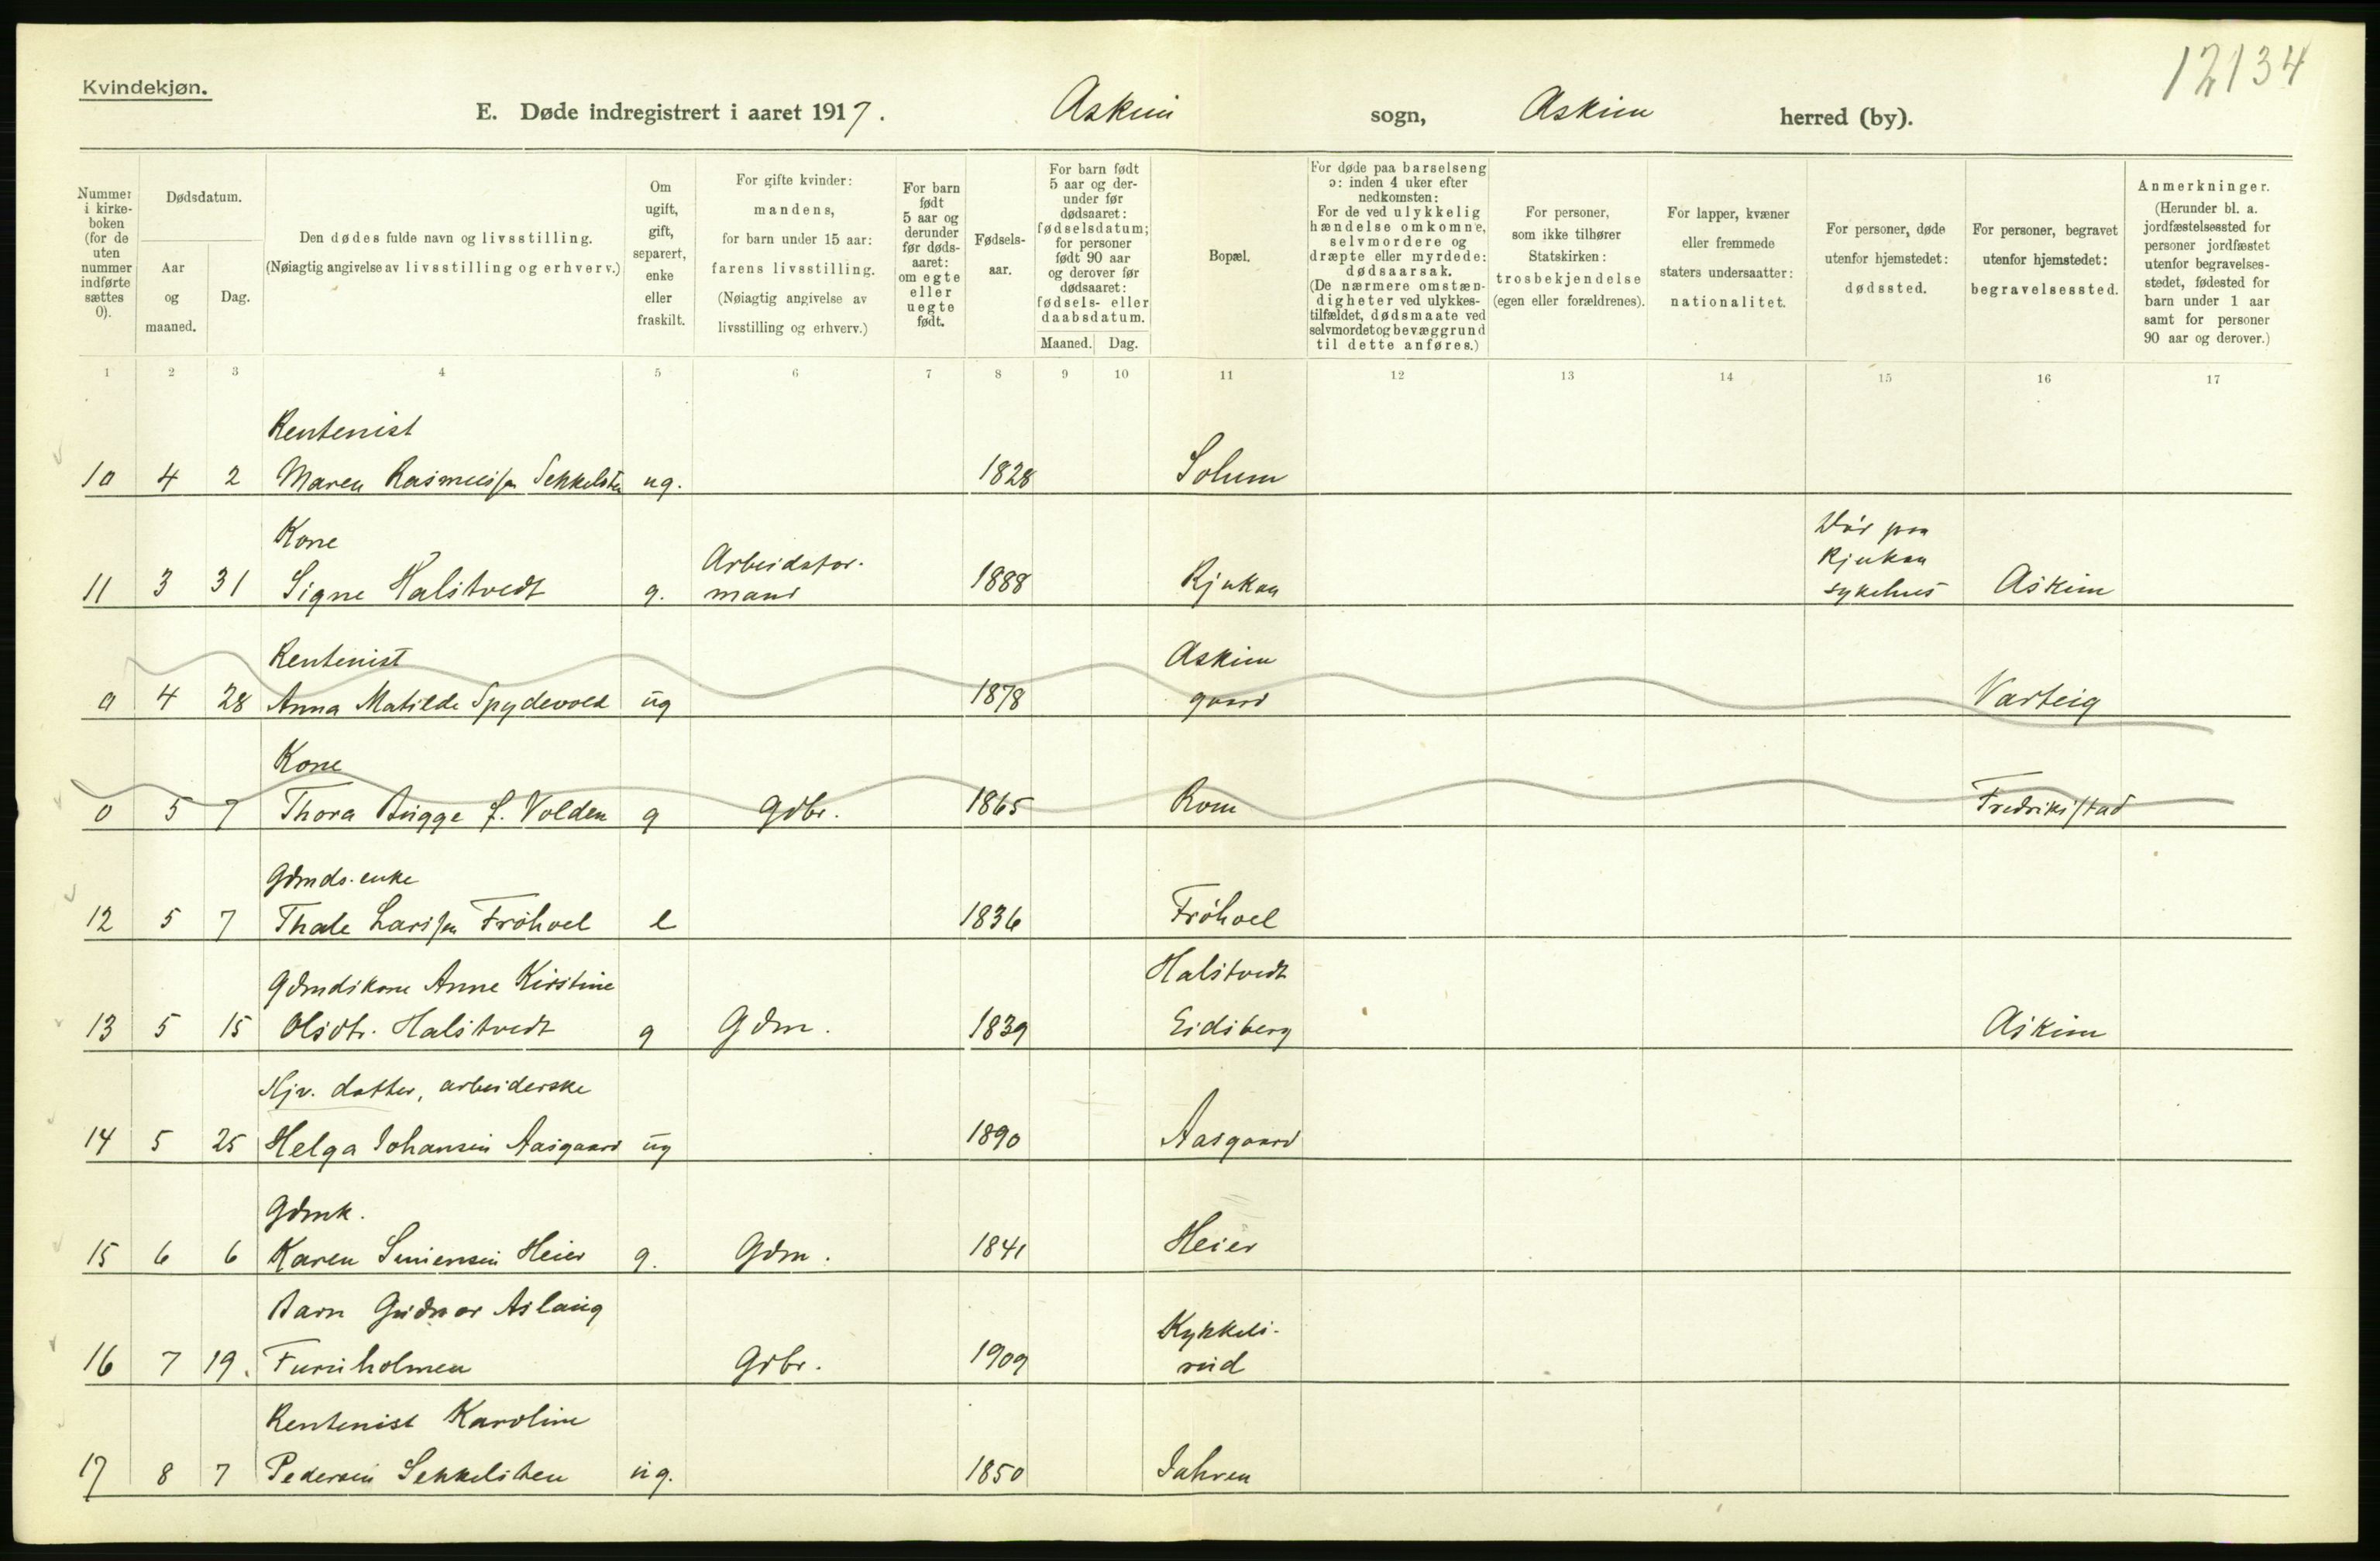 12134
Kvindekjøn.
E. Døde indregistrert i aaret 1917. Askim sogn, Askim herred (by).
Nummer i kirke- boken (for de uten nummer indførte sættes 0).
Dødsdatum.
Aar og maaned.
Dag.
Den dødes fulde navn og livsstilling.
(Nøiagtig angivelse av livsstilling og erhverv.)
Om ugift, gift, separert, enke eller fraskilt.
For gifte kvinder: mandens, for barn under 15 aar: farens livsstilling. (Nøiagtig angivelse av livsstilling og erhverv.)
For barn født 5 aar og derunder før døds- aaret: om egte eller uegte født.
Fødsels- aar.
For barn født 5 aar og der- under før dødsaaret: fødselsdatum; for personer født 90 aar og derover før dødsaaret: fødsels- eller daabsdatum.
Maaned. Dag.
Bopæl.
For døde paa barselseng ɔ: inden 4 uker efter nedkomsten: For de ved ulykkelig hændelse omkomne, selvmordere og dræpte eller myrdede: dødsaarsak. (De nærmere omstæn- digheter ved ulykkes- tilfældet, dødsmaate ved selvmordet og bevæggrund til dette anføres.)
For personer, som ikke tilhører Statskirken: trosbekjendelse (egen eller forældrenes).
For lapper, kvæner eller fremmede staters undersaatter: nationalitet.
For personer, døde utenfor hjemstedet: dødssted.
For personer, begravet utenfor hjemstedet: begravelsessted.
Anmerkninger. (Herunder bl. a. jordfæstelsessted for personer jordfæstet utenfor begravelses- stedet, fødested for barn under 1 aar samt for personer 90 aar og derover.)
1 2 3 4 5 6 7 8 9 10 11 12 13 14 15 16 17
Rentenist
10 4 2 Maren Rasmussen Sekkelsten ug. 1828 Solum
Kone Arbeidsfor- Dör paa Rjukan
11 3 31 Signe Halstvedt g. mand 1888 Rjukan sykehus Askim
Rentenist Askim
0 4 28 Anna Matilde Spydevold ug 1878 gaard Varteig
Kone
0 5 7 Thora Bugge f. Volden g Gdbr. 1865 Rom Fredrikstad
Gdmds. enke
12 5 7 Thale Larssen Fröhoel e 1836 Fröhoel
Gdmdskone Anne Kirstine Halstvedt
13 5 15 Olsdtr. Halstvedt g Gdm. 1839 Eidsberg Askim
Hjv. datter, arbeiderske
14 5 25 Helga Johansen Aasgaard ug 1890 Aasgaard
Gdmk.
15 6 6 Karen Simensen Heier g. Gdm. 1841 Heier
Barn Gudvor Aslaug Kykkels-
16 7 19. Furuholmen Gdbr. 1909 rud
Rentenist Karoline
17 8 7 Pedersen Sekkelsten ug. 1850 Jahren